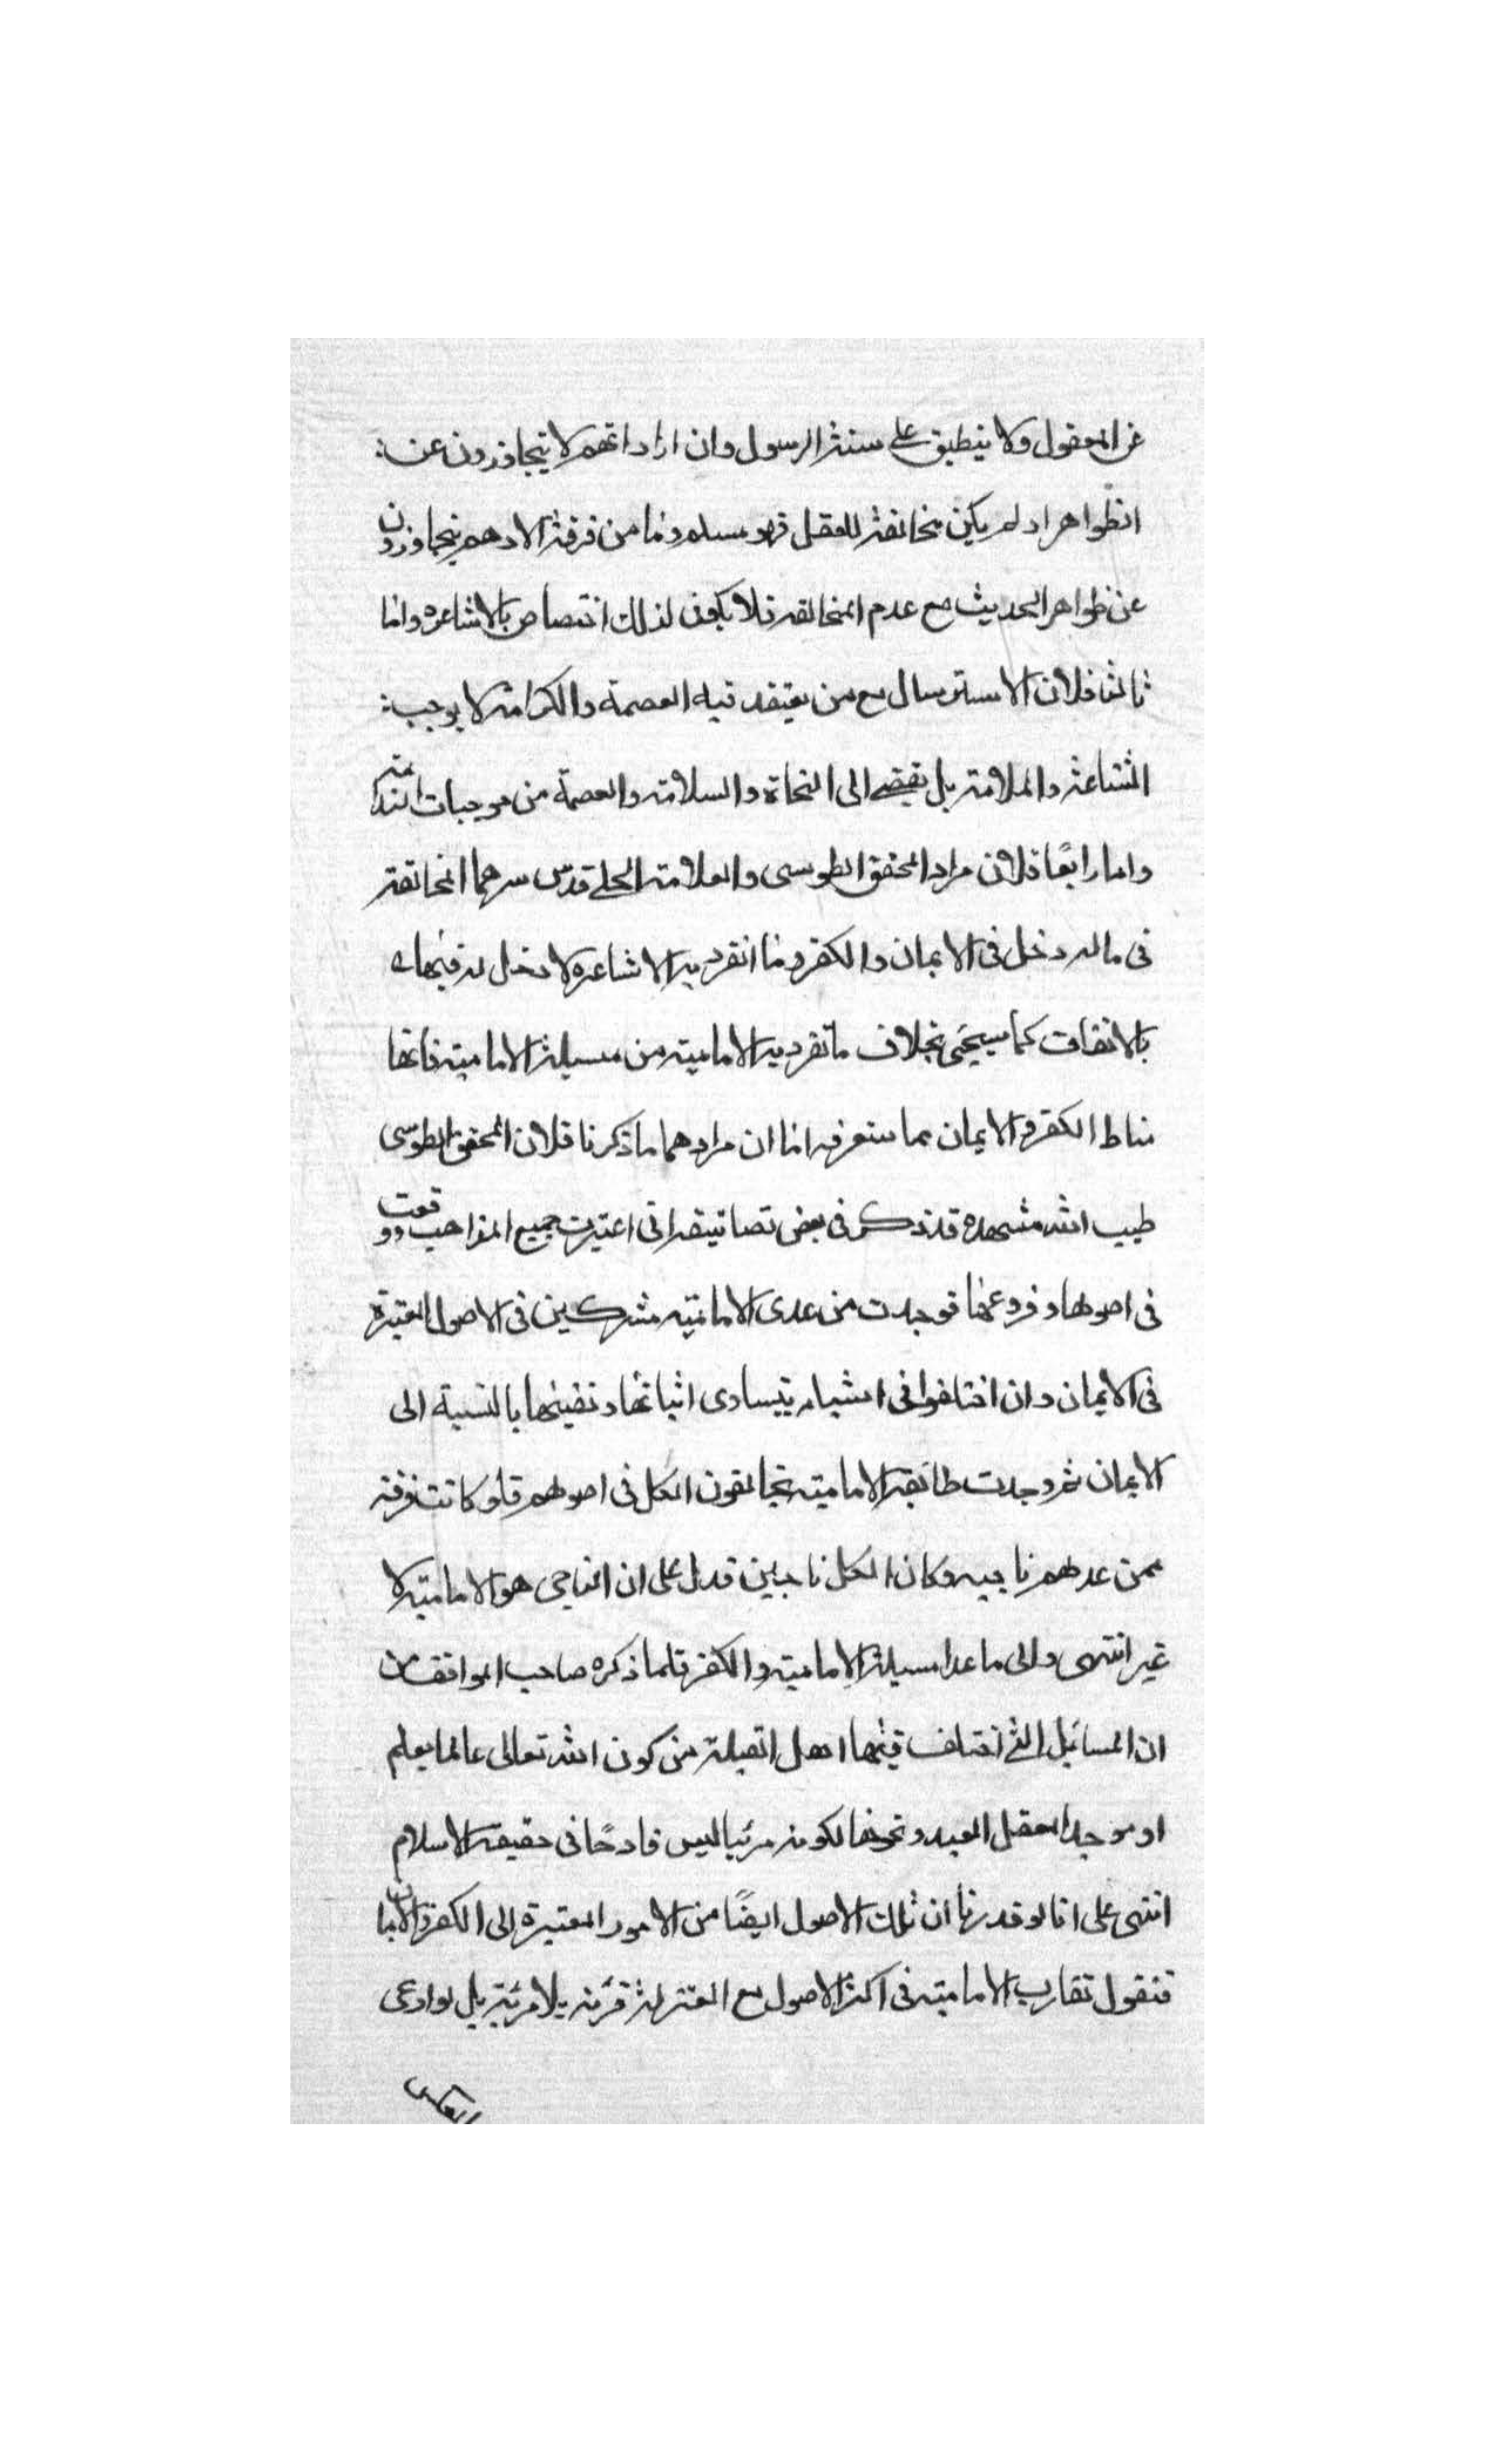 عن المعقول ولا ينطبق على سنة الرسول وان اراد انهم لا يتجاوزون عن
الظواهر اذ لم يكن مخالفة للعقل فهو مسلم وما من فرقة الا وهم يتجاوزون
عن ظواهر الحديث مع عدم المخالفه فلا يكون لذلك اختصاص بالاشاعره واما
ثالثا فلان الاسترسال مع من يعتقد فيه العصمة والكرامة لا يوجب
الشناعة والملامة بل يفضى الى النجاة والسلامة والعصمة من موجبات الندامة
واما رابعًا فلان مراد المحقق الطوسى والعلامة الحلى قدس سرهما المخالفة
فى ماله دخل فى الايمان والكفر وما انفرد به الاشاعره لا دخل له فيهما
بالاتفاق كما سيجئ بخلاف ما تفرد به الامامية من مسيلة الامامية فانها
مناط الكفر والايمان مما ستعرفه اما ان مرادهما ما ذكرنا فلان المحقق الطوسى
طيب الله مشهده قد ذكر فى بعض تصانيفه انى اعتبرت جميع المذاهب ووقفت
فى اصولها وفروعها فوجدت من عدى الامامية مشركين فى الاصول المعتبرة
فى الايمان وان اختلفوا فى اشياء يتساوى اثباتها ونفيها بالنسبة الى
الايمان ثم وجدت طائفة الامامية يخالفون الكل فى اصولهم فلو كانت فرقة
ممن عدلهم ناجيه وكان الكل ناجين فدل على ان الناجى هو الامامية لا
غير انتهى والى ما عدا مسيلة الامامية والكفر فلما ذكره صاحب المواقف من
ان المسائل التى اختلف فيها اهل القبلة من كون الله تعالى عالما بعلم
او موجدا لعقل العبد ونحوها لكونه مرئيا ليس قادحًا فى حقيقه الاسلام
انتهى على انا لو قدرنا ان تلك الاصول ايضًا من الامور المعتبرة الى الكفر والايمان
فنقول تقارب الامامية فى اكثر الاصول مع المعتزلة قرينة بلا مرية بل لو ادعى
العكس